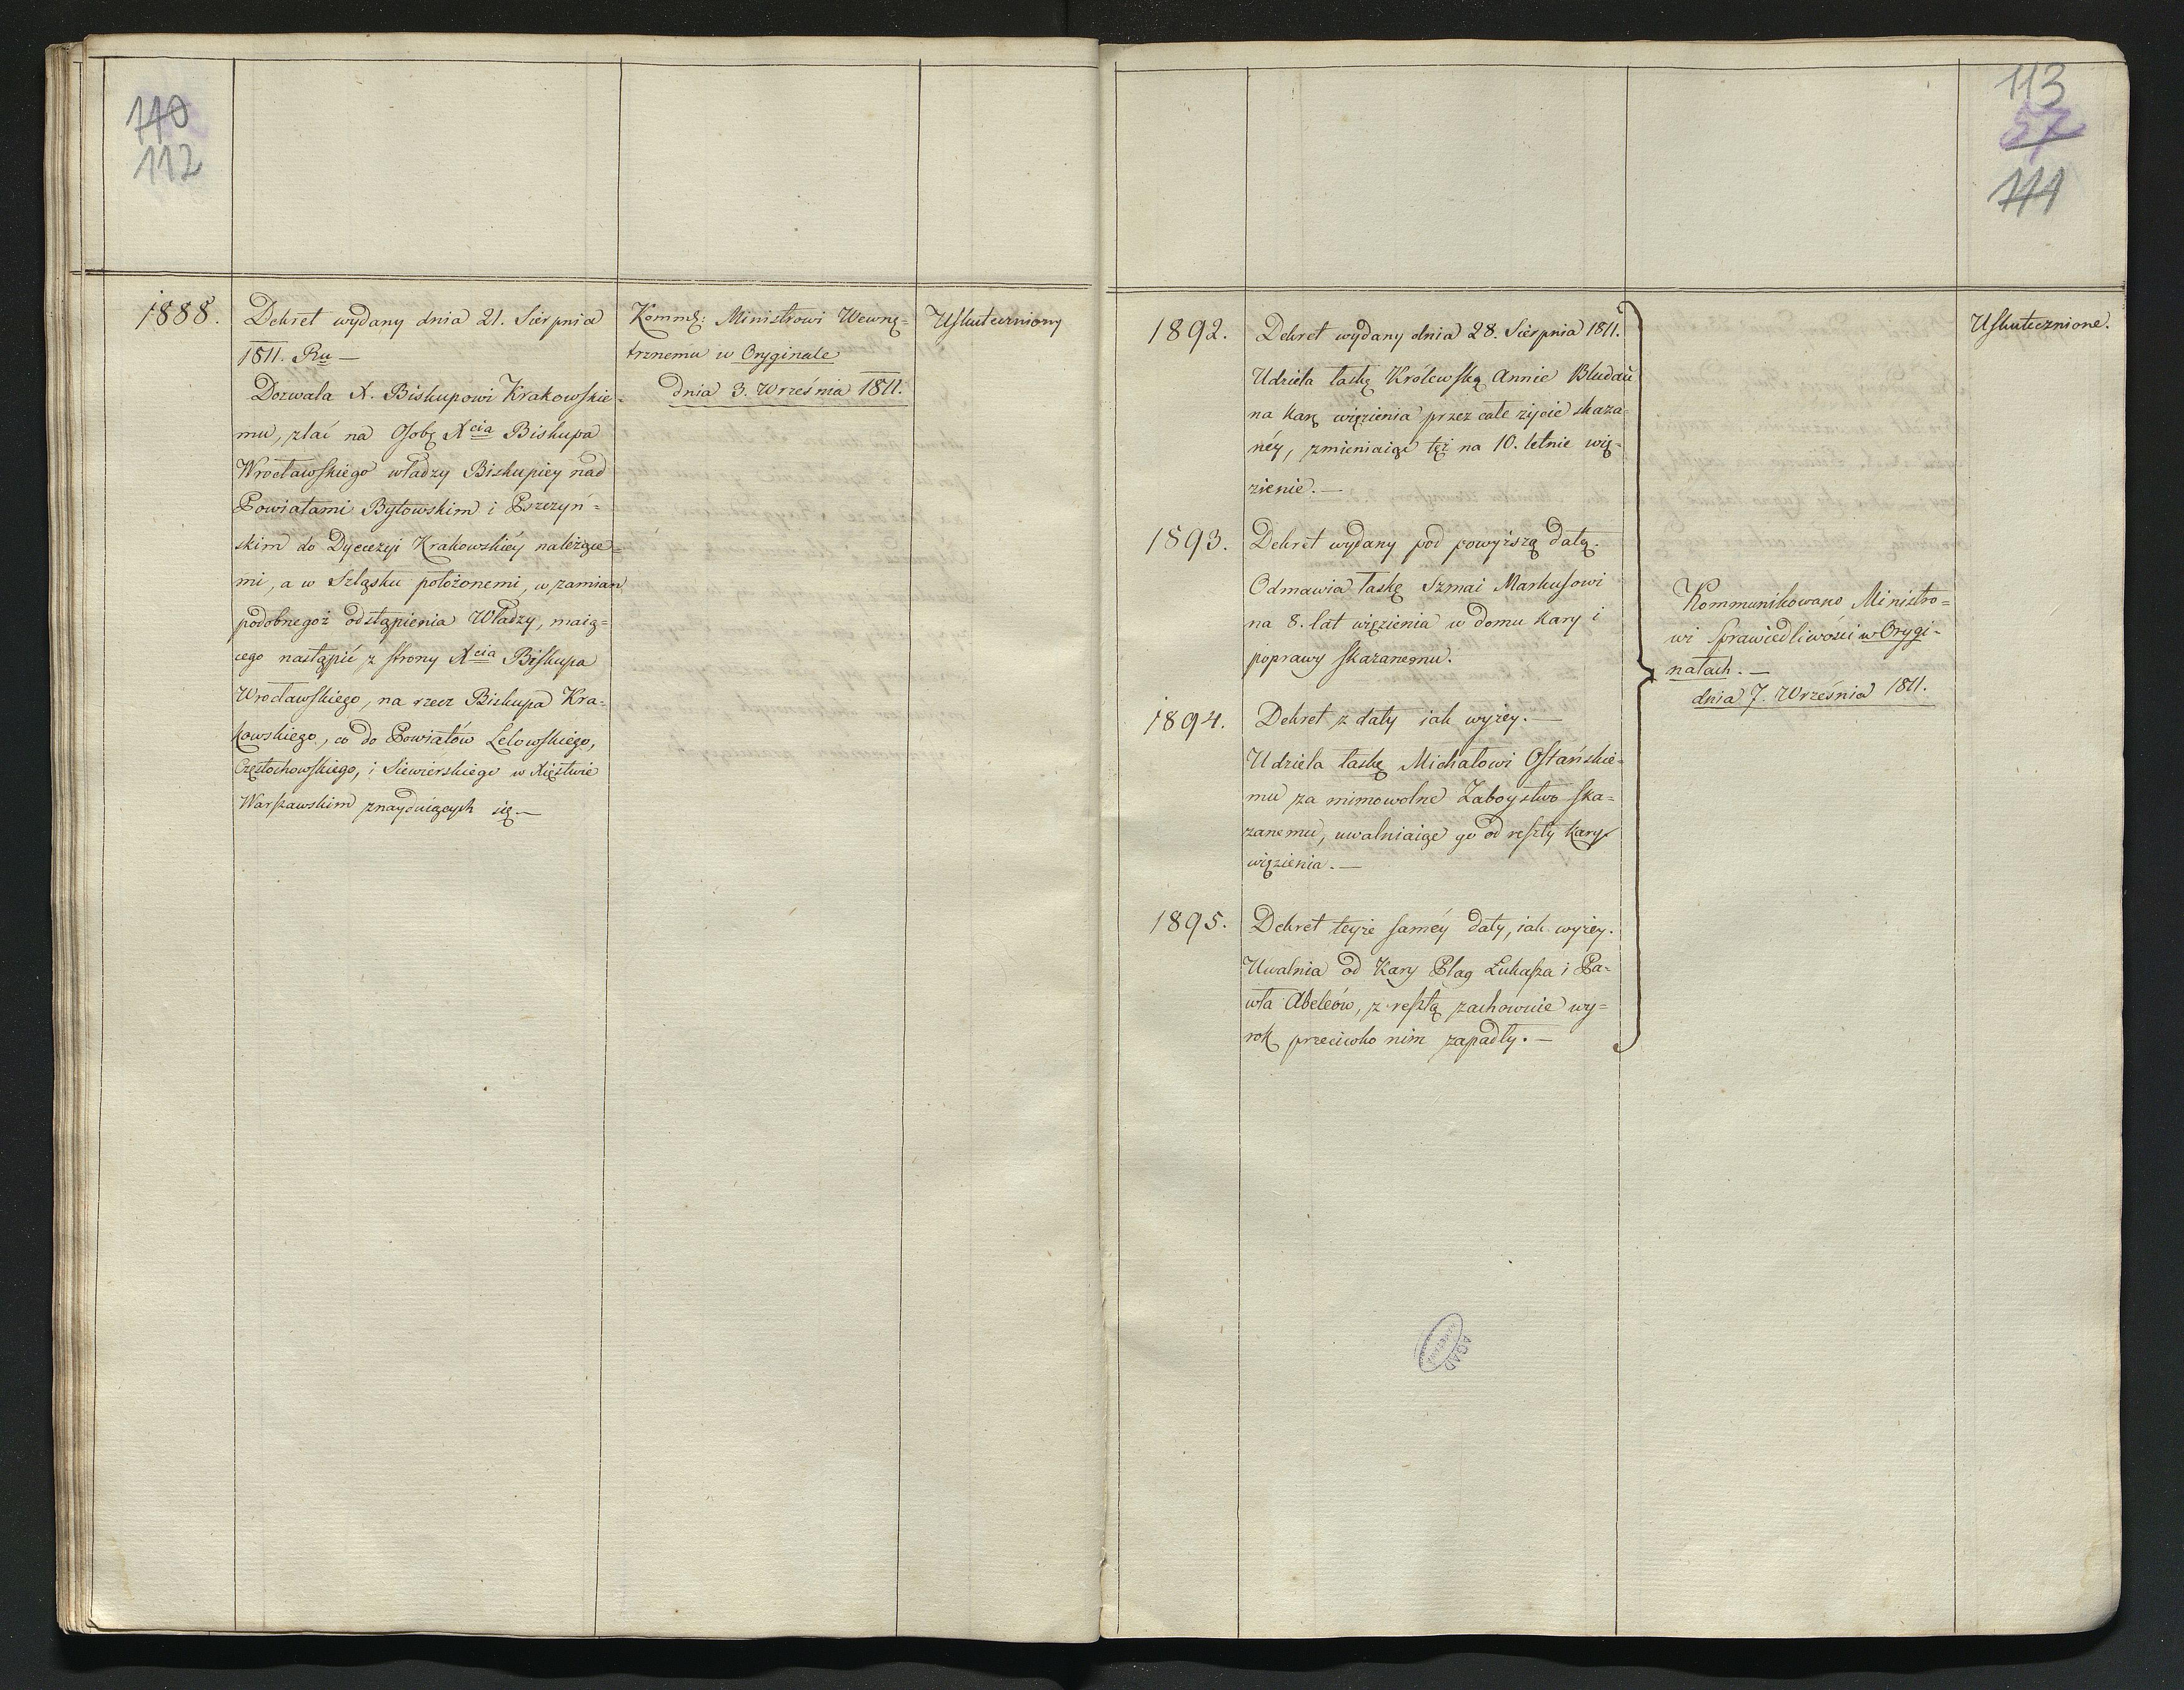 110
112
1888.
Dekret wydany dnia 21. Sierpnia
1811. Ru —
Dozwala X. Biskupowi Krakowskie-
mu, zlać na Osobę Xcia Biskupa
Wrocławskiego władzy Biskupiey nad
Powiatami Bytowskim i Pszczyń=
skim do Dyecezyi Krakowskiéy należące=
mi, a w Szląsku położonemi, w zamian
podobnegoż odstąpienia Władzy, maią=
cego nastąpić z strony Xcia Biskupa
Wrocławskiego, na rzecz Biskupa Kra-
kowskiego, co do Powiatów Lelowskiego,
Częstochowskiego, i Siewierskiego w Xięstwie
Warszawskim znayduiących się. —
Kommk: Ministrowi Wewnę=
trznemu w Oryginale
dnia 3. Września 1811.
Uskuteczniony
113
57
111
1892.
Dekret wydany dnia 28. Sierpnia 1811.
Udziela łaskę Królewską Annie Bludau
na karę więzienia przez całe życie skaza-
néy, zmieniaiąc tęż na 10. letnie wię-
zienie. —
1893.
Dekret wydany pod powyższą datą.
Odmawia łaskę Szmai Markusowi
na 8. lat więzienia w domu kary i
poprawy skazanemu.
1894.
Dekret z daty iak wyżey. —
Udziela łaskę Michałowi Ostańskie-
mu za mimowolne Zaboystwo ska-
zanemu, uwalniaiąc go od reszty kary
więzienia. —
1895.
Dekret teyże saméy daty, iak wyżey.
Uwalnia od Kary Plag Łukasza i Pa-
wła Abelców, z resztą zachowuie wy=
rok przeciwko nim zapadły. —
Kommunikowano Ministro=
wi Sprawiedliwości w Orygi-
nałach. —
dnia 7. Września 1811.
Uskutecznione.
AGAD